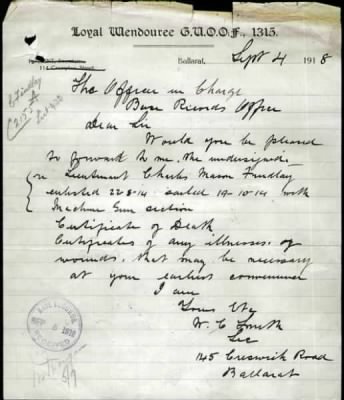 Loyal Wendouree G.U.O.O.F., 1315.
Ballarat, Sept 4 1918
The Officer in Charge
Base Records Office
Dear Sir
Would you be pleased
to forward to me, the undersigned,
re Lieutenant Charles Mason Findlay
enlisted 22-8-14 sailed 19-10-14 with
Machine Gun section
Certificate of Death
Certificates of any illnesses, of
wounds, that may be necessary
at your earliest convenience
I am
Yours
W. C. Smith
Sec
145 Creswick Road
Ballarat
C Findlay
BASE RECORDS
1918
RECEIVED